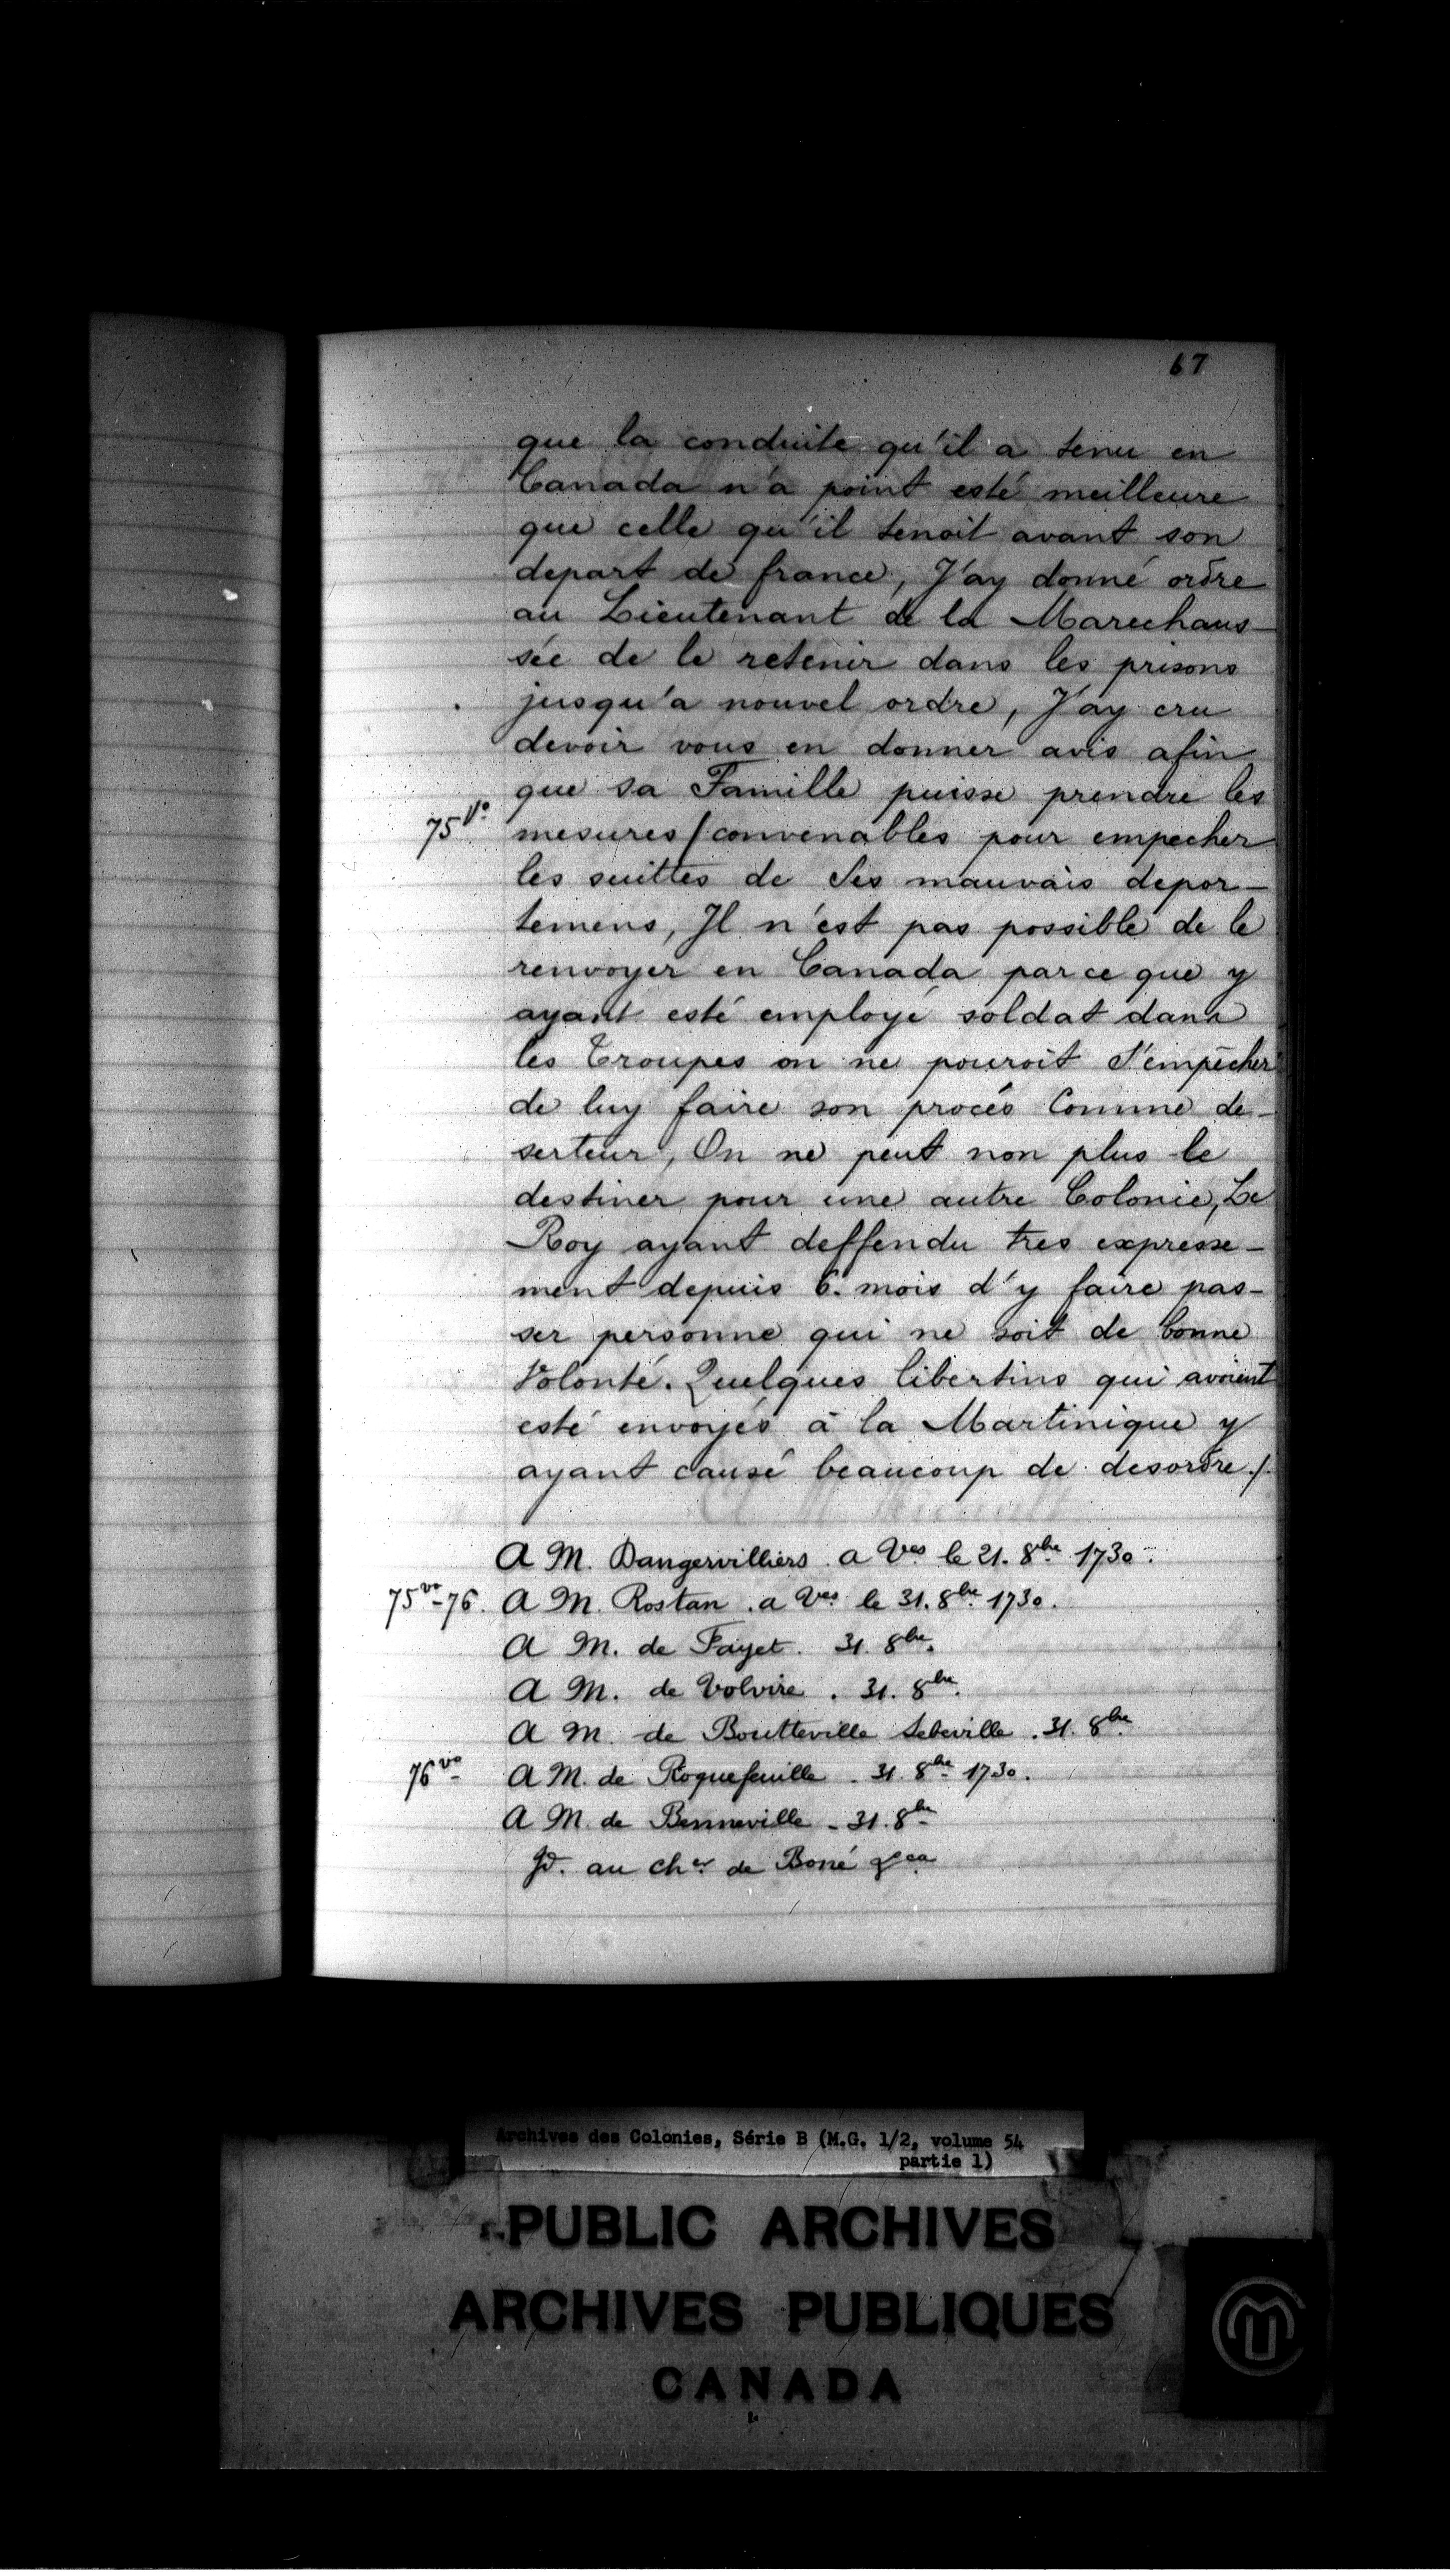 67
que la conduite qu'il a tenu en
Canada n'a point esté meilleure
que celle qu'il tenoit avant son
depart de france, J'ay donné ordre
au Lieutenant de la Marechaus-
sée de le retenir dans les prisons
jusqu'a nouvel ordre, J'ay cru
devoir vous en donner avis afin
que sa Famille puisse prendre les
75 Vo mesures/convenables pour empecher
les suittes de ses mauvais depor-
temens, Il n'est pas possible de le
renvoyer en Canada parce que y
ayant esté employé soldat dans
les Troupes on ne pouroit s'empêcher
de luy faire son procés Comme de-
serteur, On ne peut non plus le
destiner pour une autre Colonie, Le
Roy ayant deffendu tres expresse-
ment depuis 6. mois d'y faire pas-
ser personne qui ne soit de bonne
Volonté. Quelques libertins qui avoient
esté envoyés à la Martinique y
ayant causé beaucoup de desordre./.
A M. Dangervilliers a Ves le 21. 8bre 1730.
75vo-76. A M. Rostan . a Ves le 31. 8bre 1730.
A M. de Fayet. 31. 8bre.
A M. de Volvire . 31. 8bre.
A M. de Boutteville Sebeville . 31. 8bre
76vo A M. de Roquefeuille . 31. 8bre 1730.
A M. de Benneville - 31. 8bre
Id. au cher de Boné
Archives des Colonies, Série B (M.G. 1/2, volume 54
partie 1)
PUBLIC ARCHIVES
ARCHIVES PUBLIQUES
CANADA